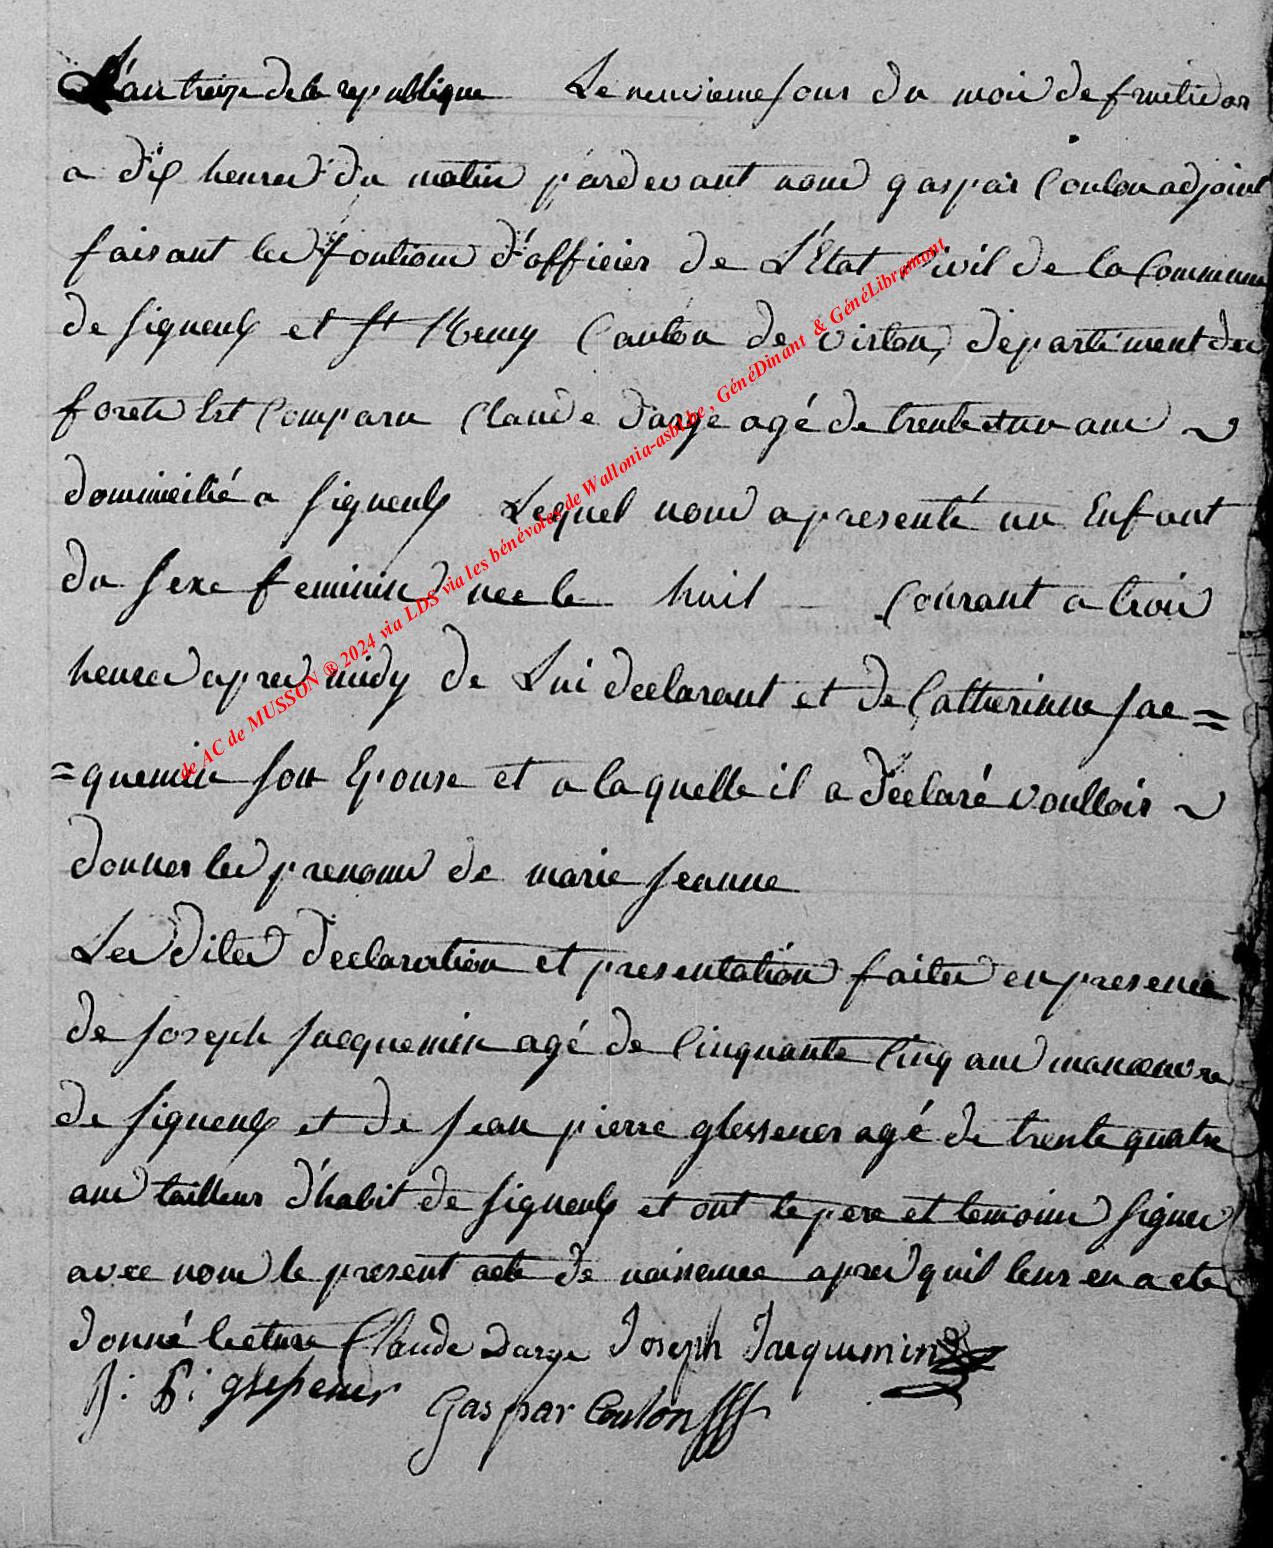 L'an treize de la republique Le neuvieme jour du mois de fructidor
a dix heures du matin pardevant nous gaspar Coulon adjoint
faisant les fontions d'officier de L'Etat Civil de la Commune
de signeulx et st Remy Canton de virton, departement des
forets Est Comparu Claude darge agé de trente et un ans
domicilié a signeulx Lequel nous a presenté un Enfant
du sexe feminin née le huit courant a trois
heures apres midy de Lui declarant et de Catherinne Jac=
=quemin son Epouse et a laquelle il a declaré voulloir
donner les prenoms de marie jeanne
Les dites declaration et presentation faites en presence
de joseph jacquemin agé de Cinquante Cinq ans manœuvre
de signeulx et de jean pierre glessener agé de trente quatre
ans tailleur d'habit de signeulx et ont le pere et temoins signer
avec nous le present acte de naissence apres quil leur en a ete
donné lecture Claude Darge Joseph Jacquemin
J: P: glessener Gaspar Coulon
de AC de MUSSON ® 2024 via LDS via les bénévoles de Wallonia-asbl.be, GénéDinant & GénéLibramont